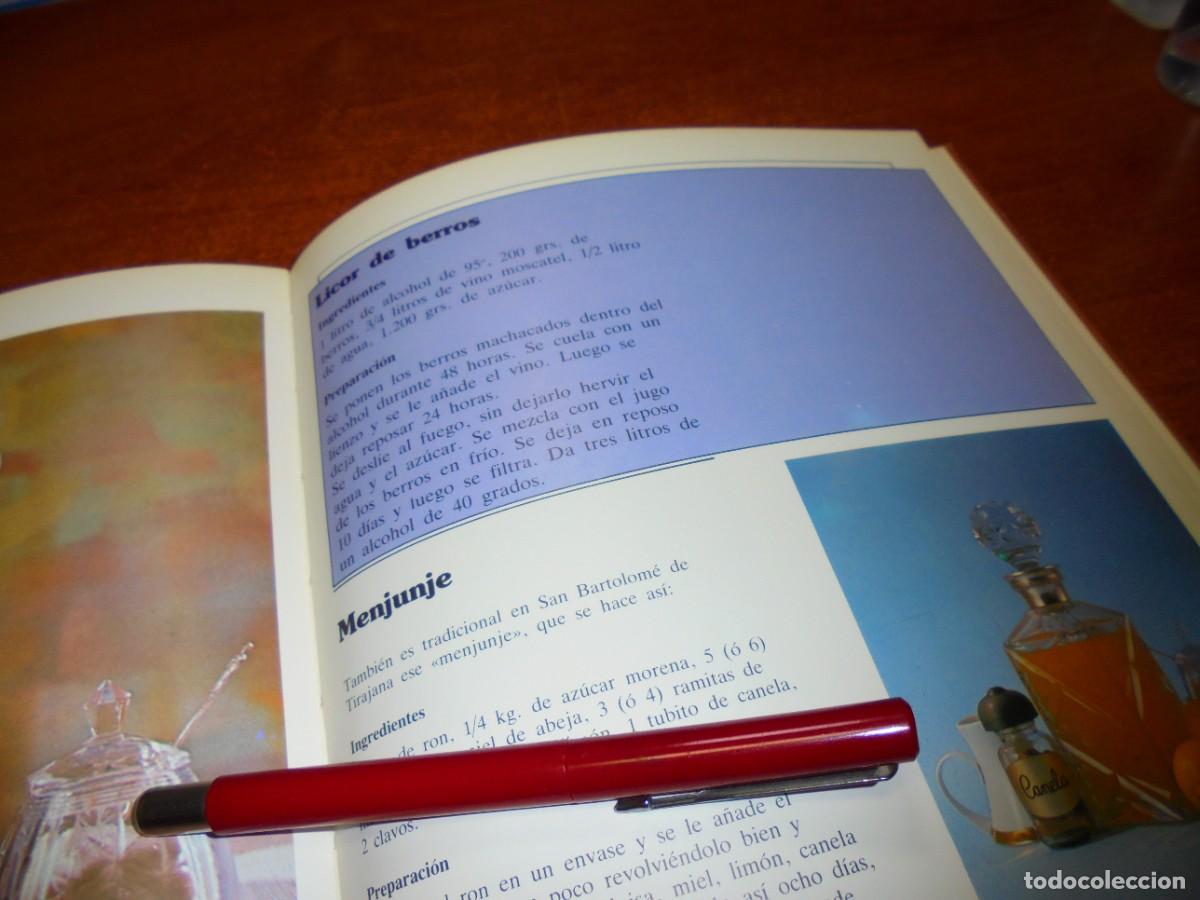 Licor de berros
Ingredientes
1 litro de alcohol de 95°, 200 grs. de
berros, 3/4 litros de vino moscatel, 1/2 litro
de agua, 1.200 grs. de azúcar.
Preparación
Se ponen los berros machacados dentro del
alcohol durante 48 horas. Se cuela con un
lienzo y se le añade el vino. Luego se
deja reposar 24 horas.
Se deslíe al fuego, sin dejarlo hervir el
agua y el azúcar. Se mezcla con el jugo
de los berros en frío. Se deja en reposo
10 días y luego se filtra. Da tres litros de
un alcohol de 40 grados.
Menjunje
También es tradicional en San Bartolomé de
Tirajana ese «menjunje», que se hace así:
Ingredientes
de ron, 1/4 kg. de azúcar morena, 5 (ó 6)
de abeja, 3 (ó 4) ramitas de
1 tubito de canela,
2 clavos.
Preparación
ron en un envase y se le añade el
poco revolviéndolo bien y
miel, limón, canela
así ocho días,
Canela
todocoleccion